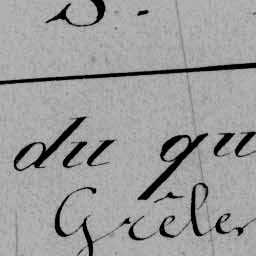 S.
du qu
Grêler